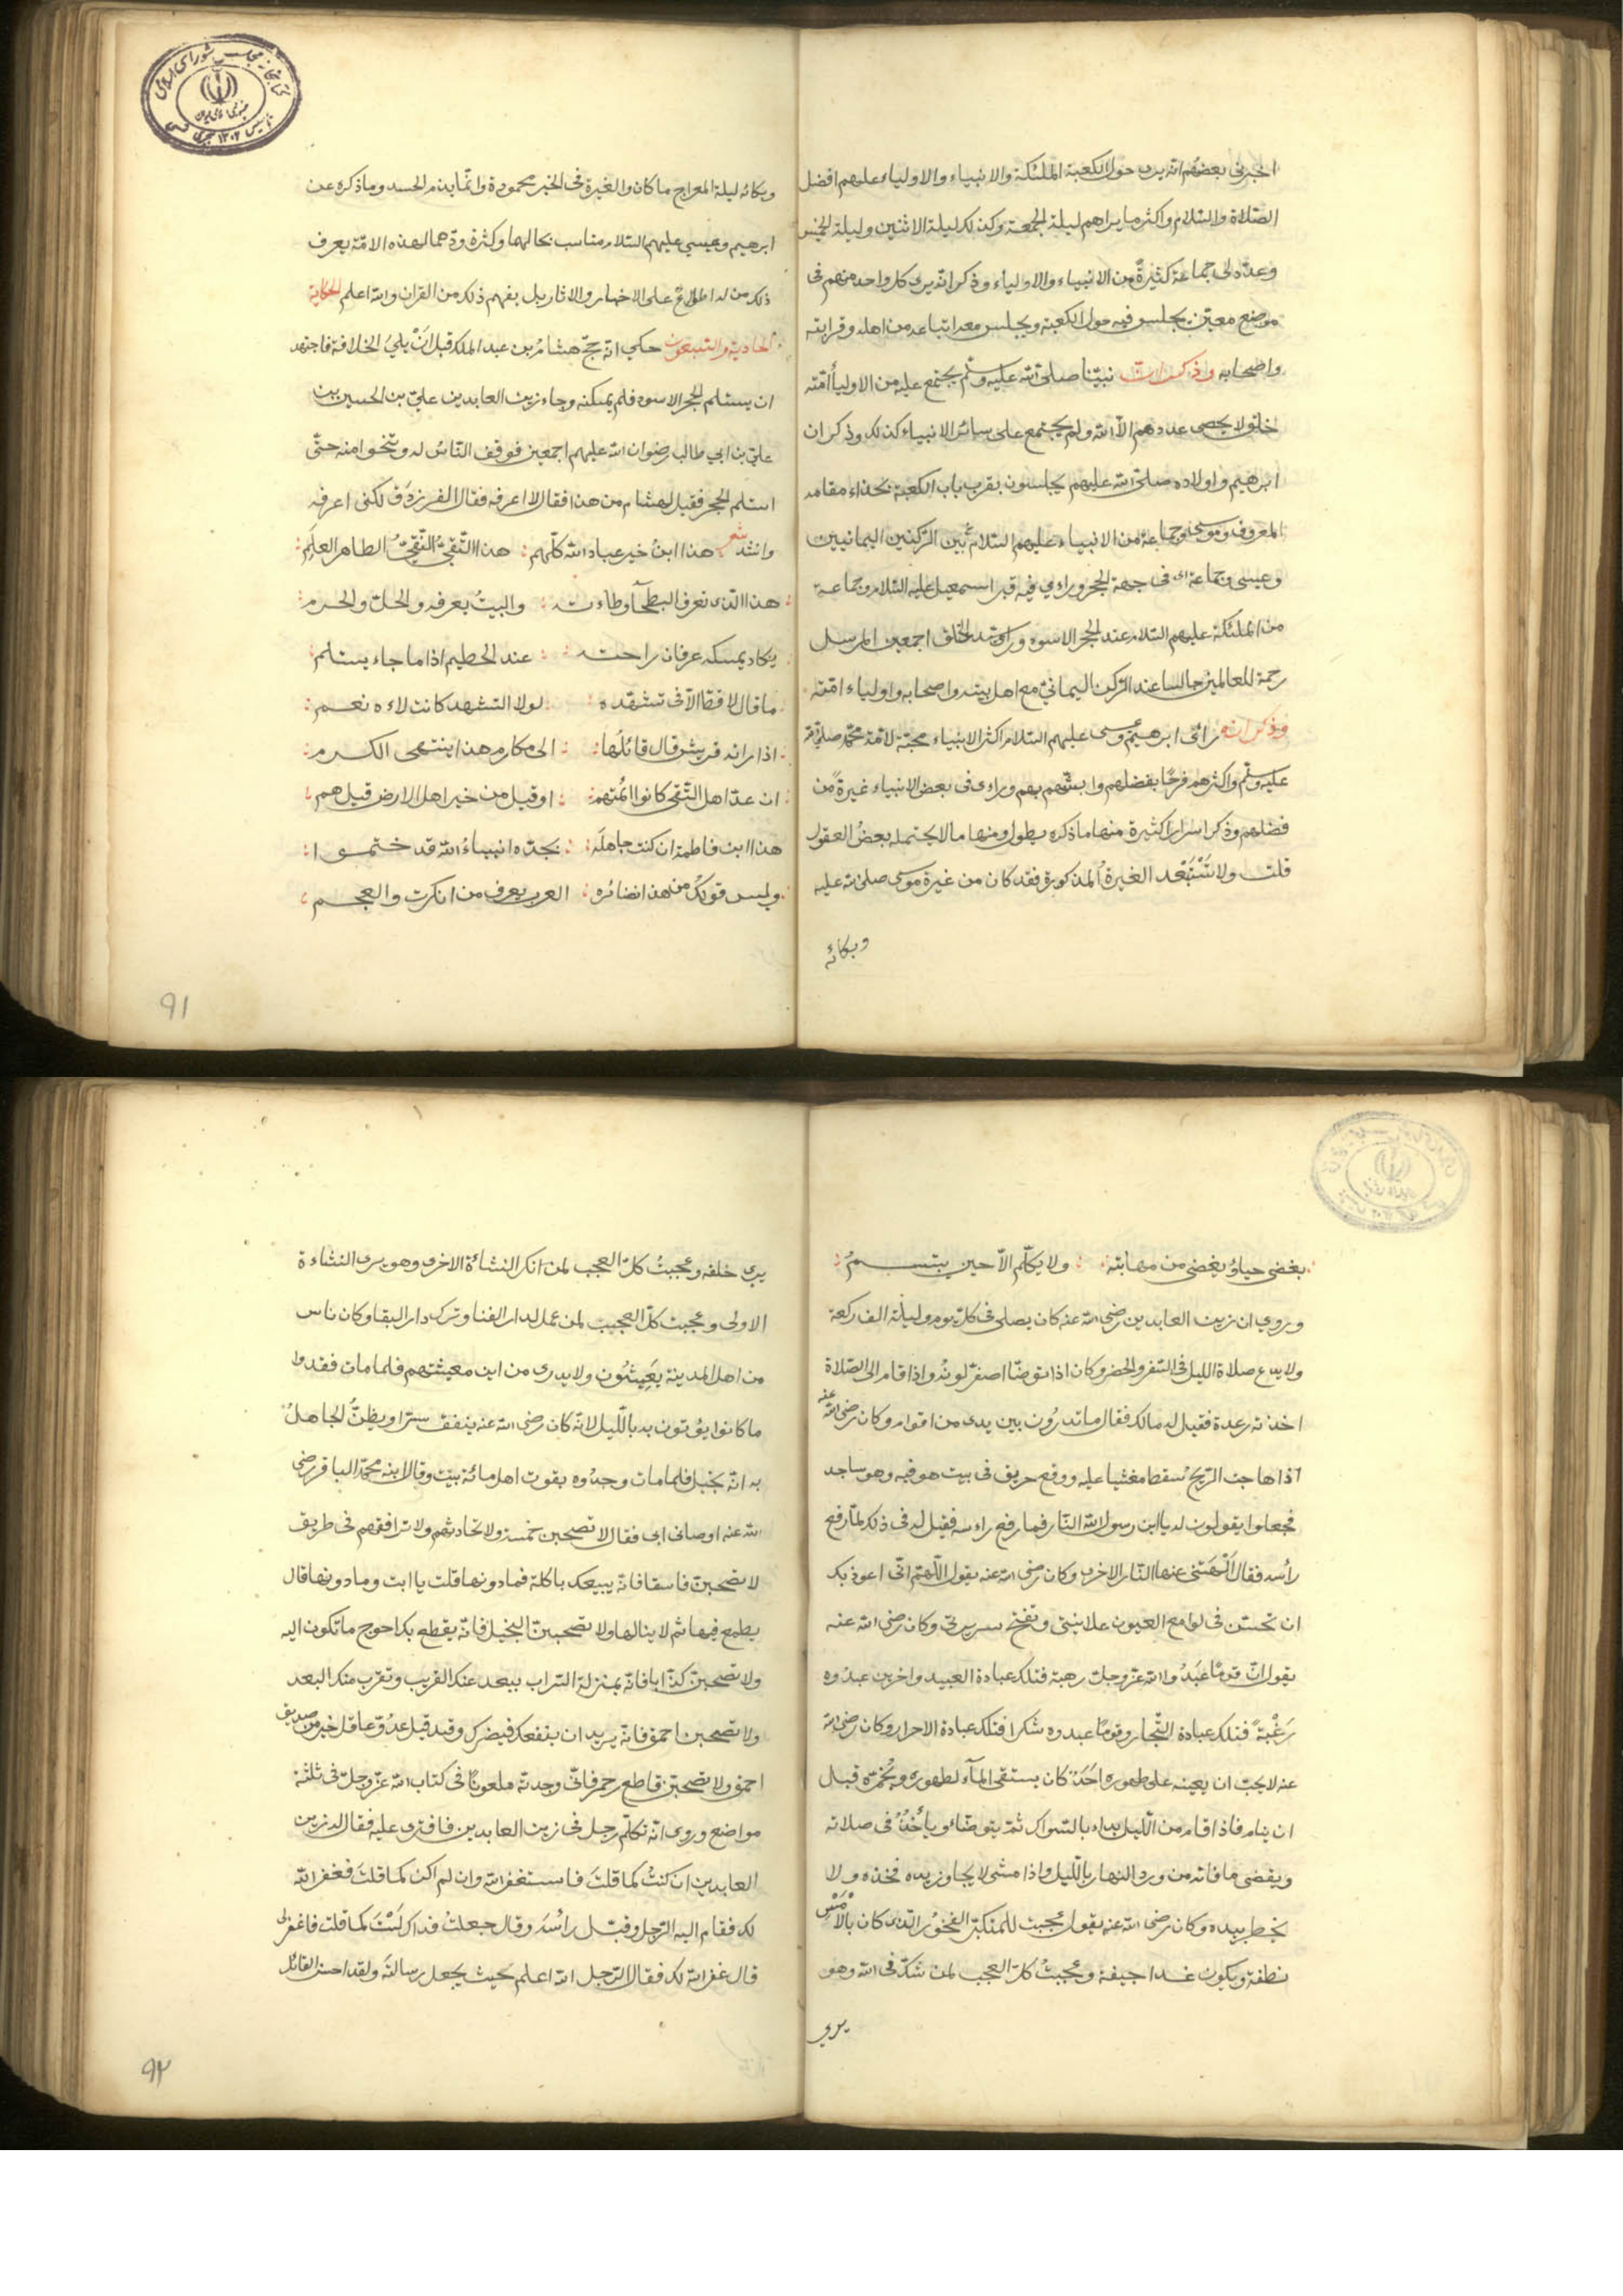 اخبرنى بعضهم انه يرى حول الكعبة الملئكة والانبياء والاولياء عليهم افضل
الصلاة والسلام واكثر ما يراهم ليلة الجمعة وكذلك ليلة الاثنين وليلة الخميس
وعدّ لى جماعة كثيرةً من الانبياء والاولياء وذكر انه يرى كل واحد منهم فى
موضع معيّن يجلس فيه حول الكعبة ويجلس معه اتباعه من اهله وقرابته
واصحابه وذكر ان نبيّنا صلى الله عليه وسلم يجتمع عليه من الاولياء امّته
خلق لا يحصى عددهم الّا الله ولم يجتمع على سائر الانبياء كذلك وذكر ان
ابرهيم واولاده صلى الله عليهم يجلسون بقرب باب الكعبة بحذاء مقامه
المعروف وموسى وجماعة من الانبياء عليهم السلام بين الركنين اليمانيين
وعيسى وجماعة فى جهة الحجر وراءى فيه قبر اسمعيل عليه السلام وجماعة
من الملئكة عليهم السلام عند الحجر الاسود وراى سيد الخلق اجمعين المرسل
رحمة للعالمين جالسا عند الركن اليمانى مع اهل بيته واصحابه واولياء امّته
وذكر انه رائى ابرهيم وعيسى عليهم السلام اكثر الانبياء محبّة لامّة محمّد صلى الله
عليه وسلّم واكثرهم فرحًا بفضلهم وابشّهم بهم وراءى فى بعض الانبياء غيرةً من
فضلهم وذكر اسرارا كثيرة منها ما ذكره يطول ومنها ما لا يحتمله بعضُ العقول
قلت ولا تَسْتَبْعد الغيرةُ المذكورة فقد كان من غيرة موسى صلى الله عليه
وبكائه
وبكائه ليلة المعراج ما كان والغيرة فى الخير محمودة وانّما يذم الحسد وما ذكره عن
ابرهيم وعيسى عليهم السلام مناسب بحالهما وكثرة ودّهما لهذه الامّة يعرف
ذلك من له اطّلاعٌ على الاخبار والاثار بل يفهم ذلك من القران والله اعلم الحكاية
الحادية والتسعون حكى انه حجّ هشامُ بن عبد الملك قبل انْ يلىَ الخلافة فاجتهد
ان يستلم الحجر الاسود فلم يمكنه وجاء زين العابدين علىّ بن الحسين بن
علىّ بن ابي طالب رضوان الله عليهم اجمعين فوقف النّاسُ له وتنحّوا منه حتّى
استلم الحجر فقيل لهشام من هذا فقال لا اعرفه فقال الفرزدق لكنى اعرفه
وانشد شعر هذا ابنُ خير عباد الله كلّهم : هذا التّقىّ النّقىّ الطاهر العلم :
هذا الّذى تعرف البطحآ وطاءته : والبيتُ يعرفه والحلّ والحرم :
يكاد يمسكه عرفان راحته : عند الحطيم اذا ما جاء يستلم :
ما قال لا قطّ الّا فى تشهّده : لولا التشهد كانت لاءه نعم :
اذا راته قريش قال قائلُها : الى مكارم هذا ينتهى الكرم :
ان عدّ اهل التّقى كانوا ائمّتهم : او قيل من خير اهل الارض قيل هم :
هذا ابن فاطمة ان كنت جاهلَه : بجدّه انبياءُ الله قد ختموا :
وليس قولك من هذا بضائره : العرب يعرف من انكرت والعجم :
يغضى حياءً ويغضى من مهابته : ولا يكلّم الّا حين يبتسمُ :
وروي ان زين العابدين رضى الله عنه كان يصلى فى كلّ يوم وليلة الف ركعة
ولا يدع صلاة الليل فى السفر والحضر وكان اذا توضّا اصفرّ لونُه واذا قام الى الصّلاة
اخذته رعدة فقيل له مالك فقال ما تدرُون بين يدى من اقوام وكان رضى الله عنه
اذا هاجت الرّيحُ سقط مغشيا عليه ووقع حريق فى بيت هو فيه وهو ساجد
فجعلوا يقولون له يا ابن رسول الله النّار فما رفع راءسه فقيل له فى ذلك لمّا رفع
رأسه فقال الهَتْنى عنها النّار الاخرى وكان رضى الله عنه يقول اللّهمّ انّى اعوذ بك
ان تحسّن فى لوامع العيون علانيتى وتقبّح سريرتى وكان رضى الله عنه
يقول انّ قومًا عَبَدُوا الله عزّ وجلّ رهبة فتلك عبادة العبيد واخرين عبدُوه
رَغْبةً فتلك عبادة التّجار وقومًا عبدوه شكرا فتلك عبادة الاحرار وكان رضى الله
عنه لا يحبّ ان يعينه على طهوره احَدٌ كان يستقى المآء لطهوره ويُخمّره قبل
ان ينام فاذا قام من اللّيل بداء بالسّواك ثمّ يتوضّاء ويأخُذُ فى صلاته
ويقضى ما فاته من ورد النهار باللّيل واذا مشى لا يجاوز يده فخذه ولا
يخطر بيده وكان رضى الله عنه يقول عجبت للمتكبّر الفخوُر الّذى كان بالاَمْسِ
نطفة ويكون غدا جيفة وعجبتُ كلّ العجب لمن شكّ فى الله وهو
يرى
يرى خلقه وعجبتُ كلّ العجب لمن انكر النشائة الاخرى وهو يرى النشاءة
الاولى وعجبت كلّ العجب لمن عمل لدار الفنا وترك دار البقا وكان ناس
من اهل المدينة يَعِيشُون ولا يدرى من اين معيشتهم فلما مات فقدوا
ما كانوا يؤتون به باللّيل لانّه كان رضى الله عنه ينفق سرّا ويظنّ الجاهلُ
به انّه بخيل فلما مات وجدُوه يقوت اهل مائة بيت وقال ابنه محمّد الباقر رضى
الله عنه اوصانى ابى فقال لا تصحبن خمسة ولا تحادثهم ولا ترافقهم فى طريق
لا تصحبنّ فاسقا فانّه يبيعك باكلة فما دونها قلت يا ابت وما دونها قال
يطمع فيها ثم لا ينالها ولا تصحبنّ البخيل فانّه يقطع بك احوج ما تكون اليه
ولا تصحبنّ كذّابا فانّه بمنزلة السّراب يبعد عنك القريب وتقرب منك البعد
ولا تصحبن احمق فانّه يريد ان ينفعك فيضرك وقد قيل عدُوّ عاقل خير من صديق
احمق ولا تصحبنّ قاطع رحم فانّى وجدته ملعونًا فى كتاب الله عزّ وجلّ فى ثلثة
مواضع وروى انّه تكلّم رجل فى زين العابدين فافترى عليه فقال له زين
العابدين ان كنتُ كما قلتَ فاستغفر الله وان لم اكن كما قلتَ فغفر الله
لك فقام اليه الرّجل وقبّل رأسه وقال جعلتُ فداك لَسْتَ كما قلت فاغفر لى
قال غفر الله لك فقال الرّجل الله اعلم بحيث يجعل رسالته ولقد احسن القائل
٩١
٩٢